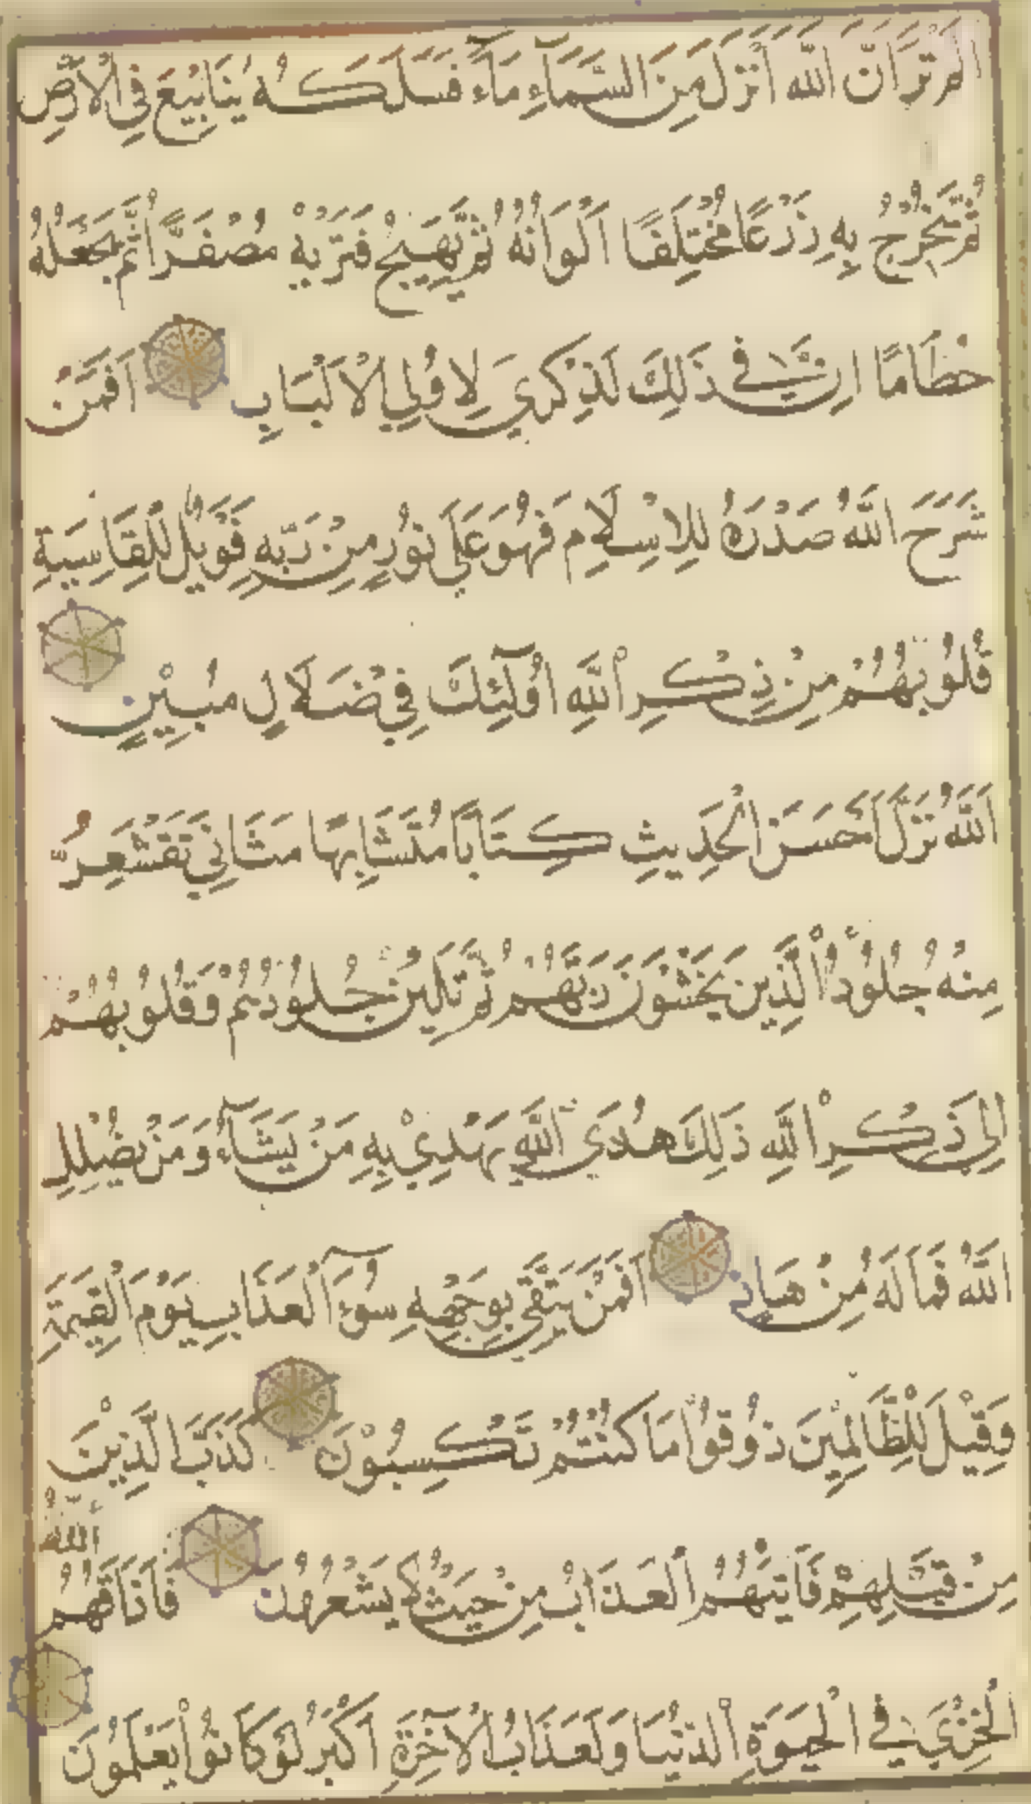 الَمْ تَرَ اَنَّ اللّٰهَ اَنْزَلَ مِنَ السَّمَآءِ مَآءً فَسَلَكَهُ يَنَابِيعَ فِي الْاَرْضِ
ثُمَّ يُخْرِجُ بِهِ زَرْعًا مُخْتَلِفًا اَلْوَانُهُ ثُمَّ يَهِيجُ فَتَرٰيهُ مُصْفَرًّا ثُمَّ يَجْعَلُهُ
حُطَامًا اِنَّ فِي ذَلِكَ لَذِكْرَى لِاُولِي الْاَلْبَابِ اَفَمَنْ
شَرَحَ اللّٰهُ صَدْرَهُ لِلْاِسْلَامِ فَهُوَ عَلَى نُورٍ مِنْ رَبِّهِ فَوَيْلٌ لِلْقَاسِيَةِ
قُلُوبُهُمْ مِنْ ذِكْرِ اللّٰهِ اُولٰٓئِكَ فِي ضَلَالٍ مُبِيْنٍ
اَللّٰهُ نَزَّلَ اَحْسَنَ الْحَدِيثِ كِتَابًا مُتَشَابِهًا مَثَانِيَ تَقْشَعِرُّ
مِنْهُ جُلُودُ الَّذِينَ يَخْشَوْنَ رَبَّهُمْ ثُمَّ تَلِينُ جُلُودُهُمْ وَقُلُوبُهُمْ
اِلَى ذِكْرِ اللّٰهِ ذَلِكَ هُدَى اللّٰهِ يَهْدِي بِهِ مَنْ يَشَآءُ وَمَنْ يُضْلِلِ
اللّٰهُ فَمَا لَهُ مِنْ هَادٍ اَفَمَنْ يَتَّقِي بِوَجْهِهِ سُوٓءَ الْعَذَابِ يَوْمَ الْقِيمَةِ
وَقِيْلَ لِلظَّالِمِيْنَ ذُوقُوا مَا كُنْتُمْ تَكْسِبُوْنَ كَذَّبَ الَّذِيْنَ
مِنْ قَبْلِهِمْ فَاَتٰيهُمُ الْعَذَابُ مِنْ حَيْثُ لَا يَشْعُرُونَ فَاَذَاقَهُمُ
اَللّٰهُ
الْخِزْيَ فِي الْحَيٰوةِ الدُّنْيَا وَلَعَذَابُ الْاٰخِرَةِ اَكْبَرُ لَوْ كَانُوا يَعْلَمُونَ